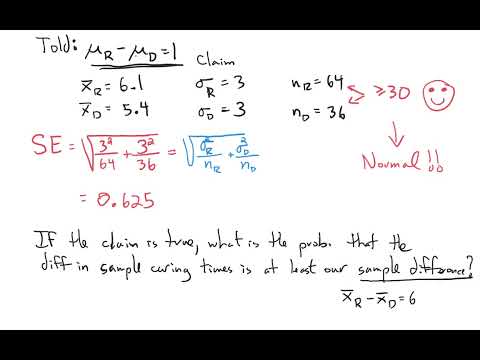 Told: μ_R − μ_D = 1 Claim
x̄_R = 6.1 σ_R = 3 n_R = 64
x̄_D = 5.4 σ_D = 3 n_D = 36
≥30
Normal!!
SE = √(3²/64 + 3²/36) = √(σ_R²/n_R + σ_D²/n_D)
= 0.625
If the claim is true, what is the prob. that the
diff in sample curing times is at least our sample difference?
x̄_R − x̄_D = 6